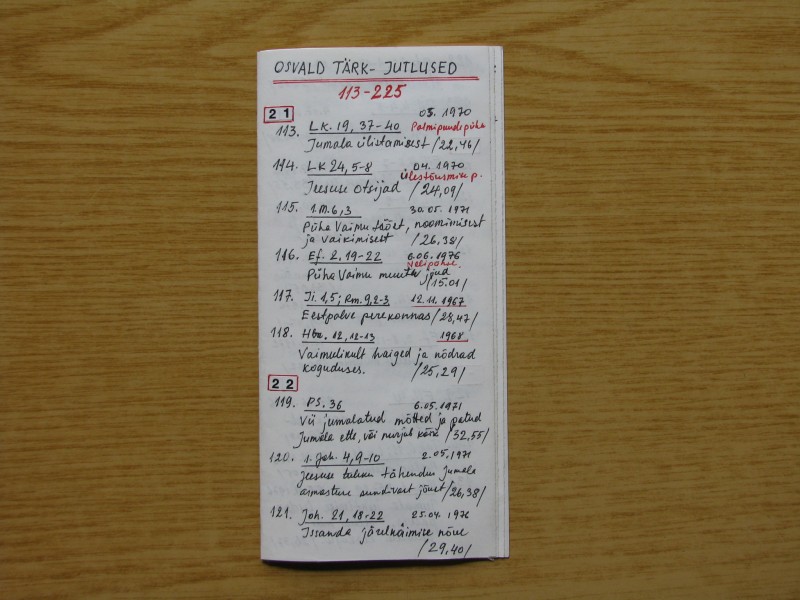 OSVALD TÄRK - JUTLUSED
113-225
21
05. 1970
113. Lk. 19, 37-40 Palmipuudepüha
Jumala ülistamisest /22,46/
04. 1970
114. LK 24, 5-8 Ülestõusmise p.
Jeesuse otsijad /24,09/
115. 1.M.6,3 30.05.1971
Püha Vaimu tööst, noomimisest
ja vaikimisest /26,38/
116. Ef. 2, 19-22 6.06.1976
Nelipühi
Püha Vaimu muutev jõud
/15.01/
117. Ii. 1,5; Rm. 9,2-3 12.11.1967
Eestpalve perekonnas /28,47/
118. Hbr. 12, 12-13 1968
Vaimulikult haiged ja nõdrad
koguduses. /25,29/
22
119. PS. 36 6.05.1971
Vii jumalatud mõtted ja patud
Jumala ette, või murjab kõik /32,55/
120. 1. Joh. 4, 9-10 2.05.1971
Jeesuse tuleku tähendus Jumala
armastuse sundivast jõust /26,38/
121. Joh. 21, 18-22 25.04.1976
Issanda järelkäimise nõue
/29,40/